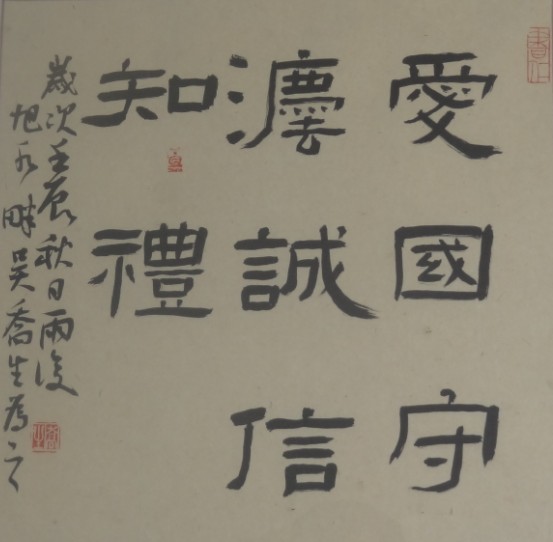 愛國守
灋誠信
知禮
歲次壬辰秋日雨後
旭水畔吳喬生為之